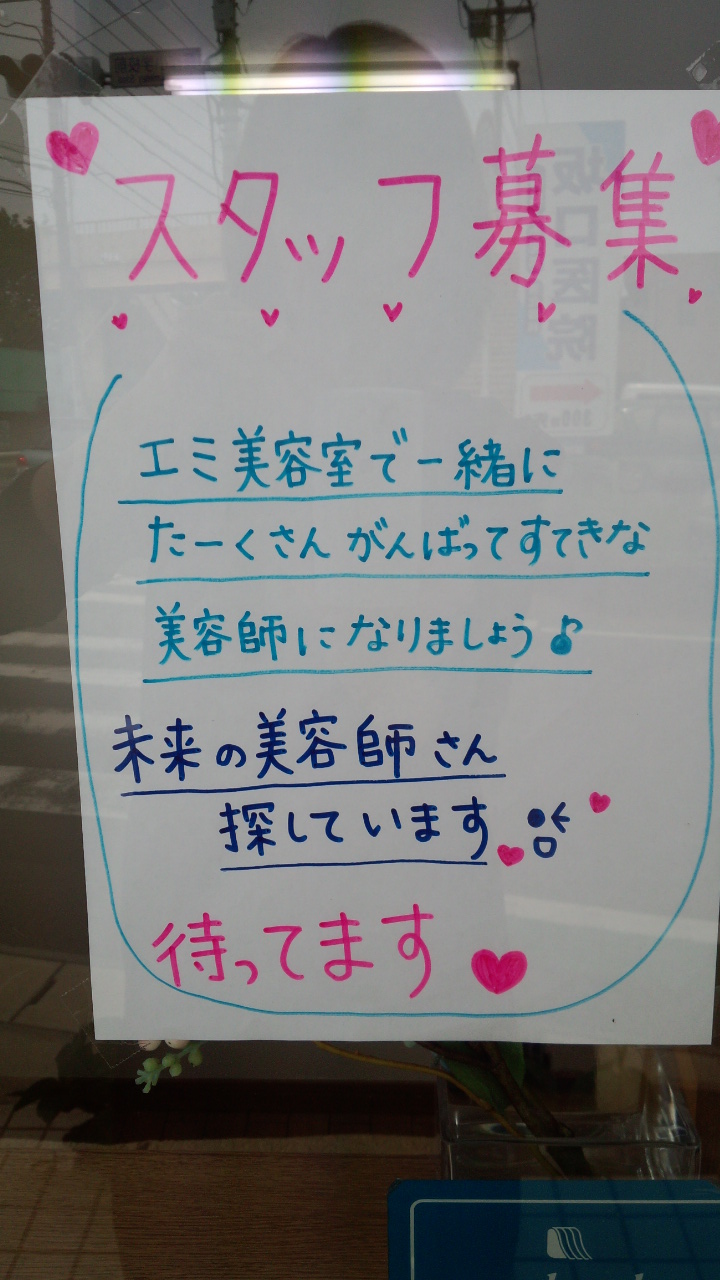 スタッフ募集
エミ美容室で一緒に
たーくさんがんばってすてきな
美容師になりましょう♪
未来の美容師さん
探しています
待ってます
坂口医院